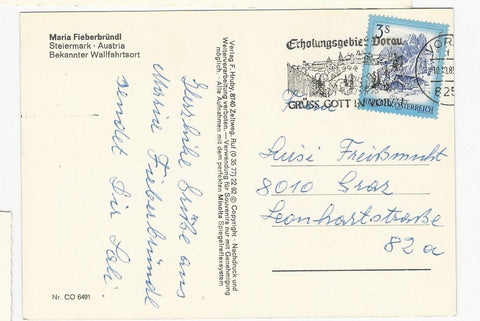 Maria Fieberbründl
Steiermark · Austria
Bekannter Wallfahrtsort
Herzliche Grüße aus
Maria Fieberbründl
sendet Dir Loli
Nr. CO 6491
Verlag F. Hruby, 8740 Zeltweg, Ruf (0 35 77) 22 92 © Copyright · Nachdruck und
Weiterverarbeitung verboten. — Verwendung für Souvenirs nur mit Genehmigung
möglich. · Alle Aufnahmen mit dem perfekten Minolta Spiegelreflexsystem
Erholungsgebiet Vorau
GRÜSS GOTT IN
3S
ÖSTERREICH
VOR
825
Luisi Freißmuth
8010 Graz
Leonhartstraße
82a